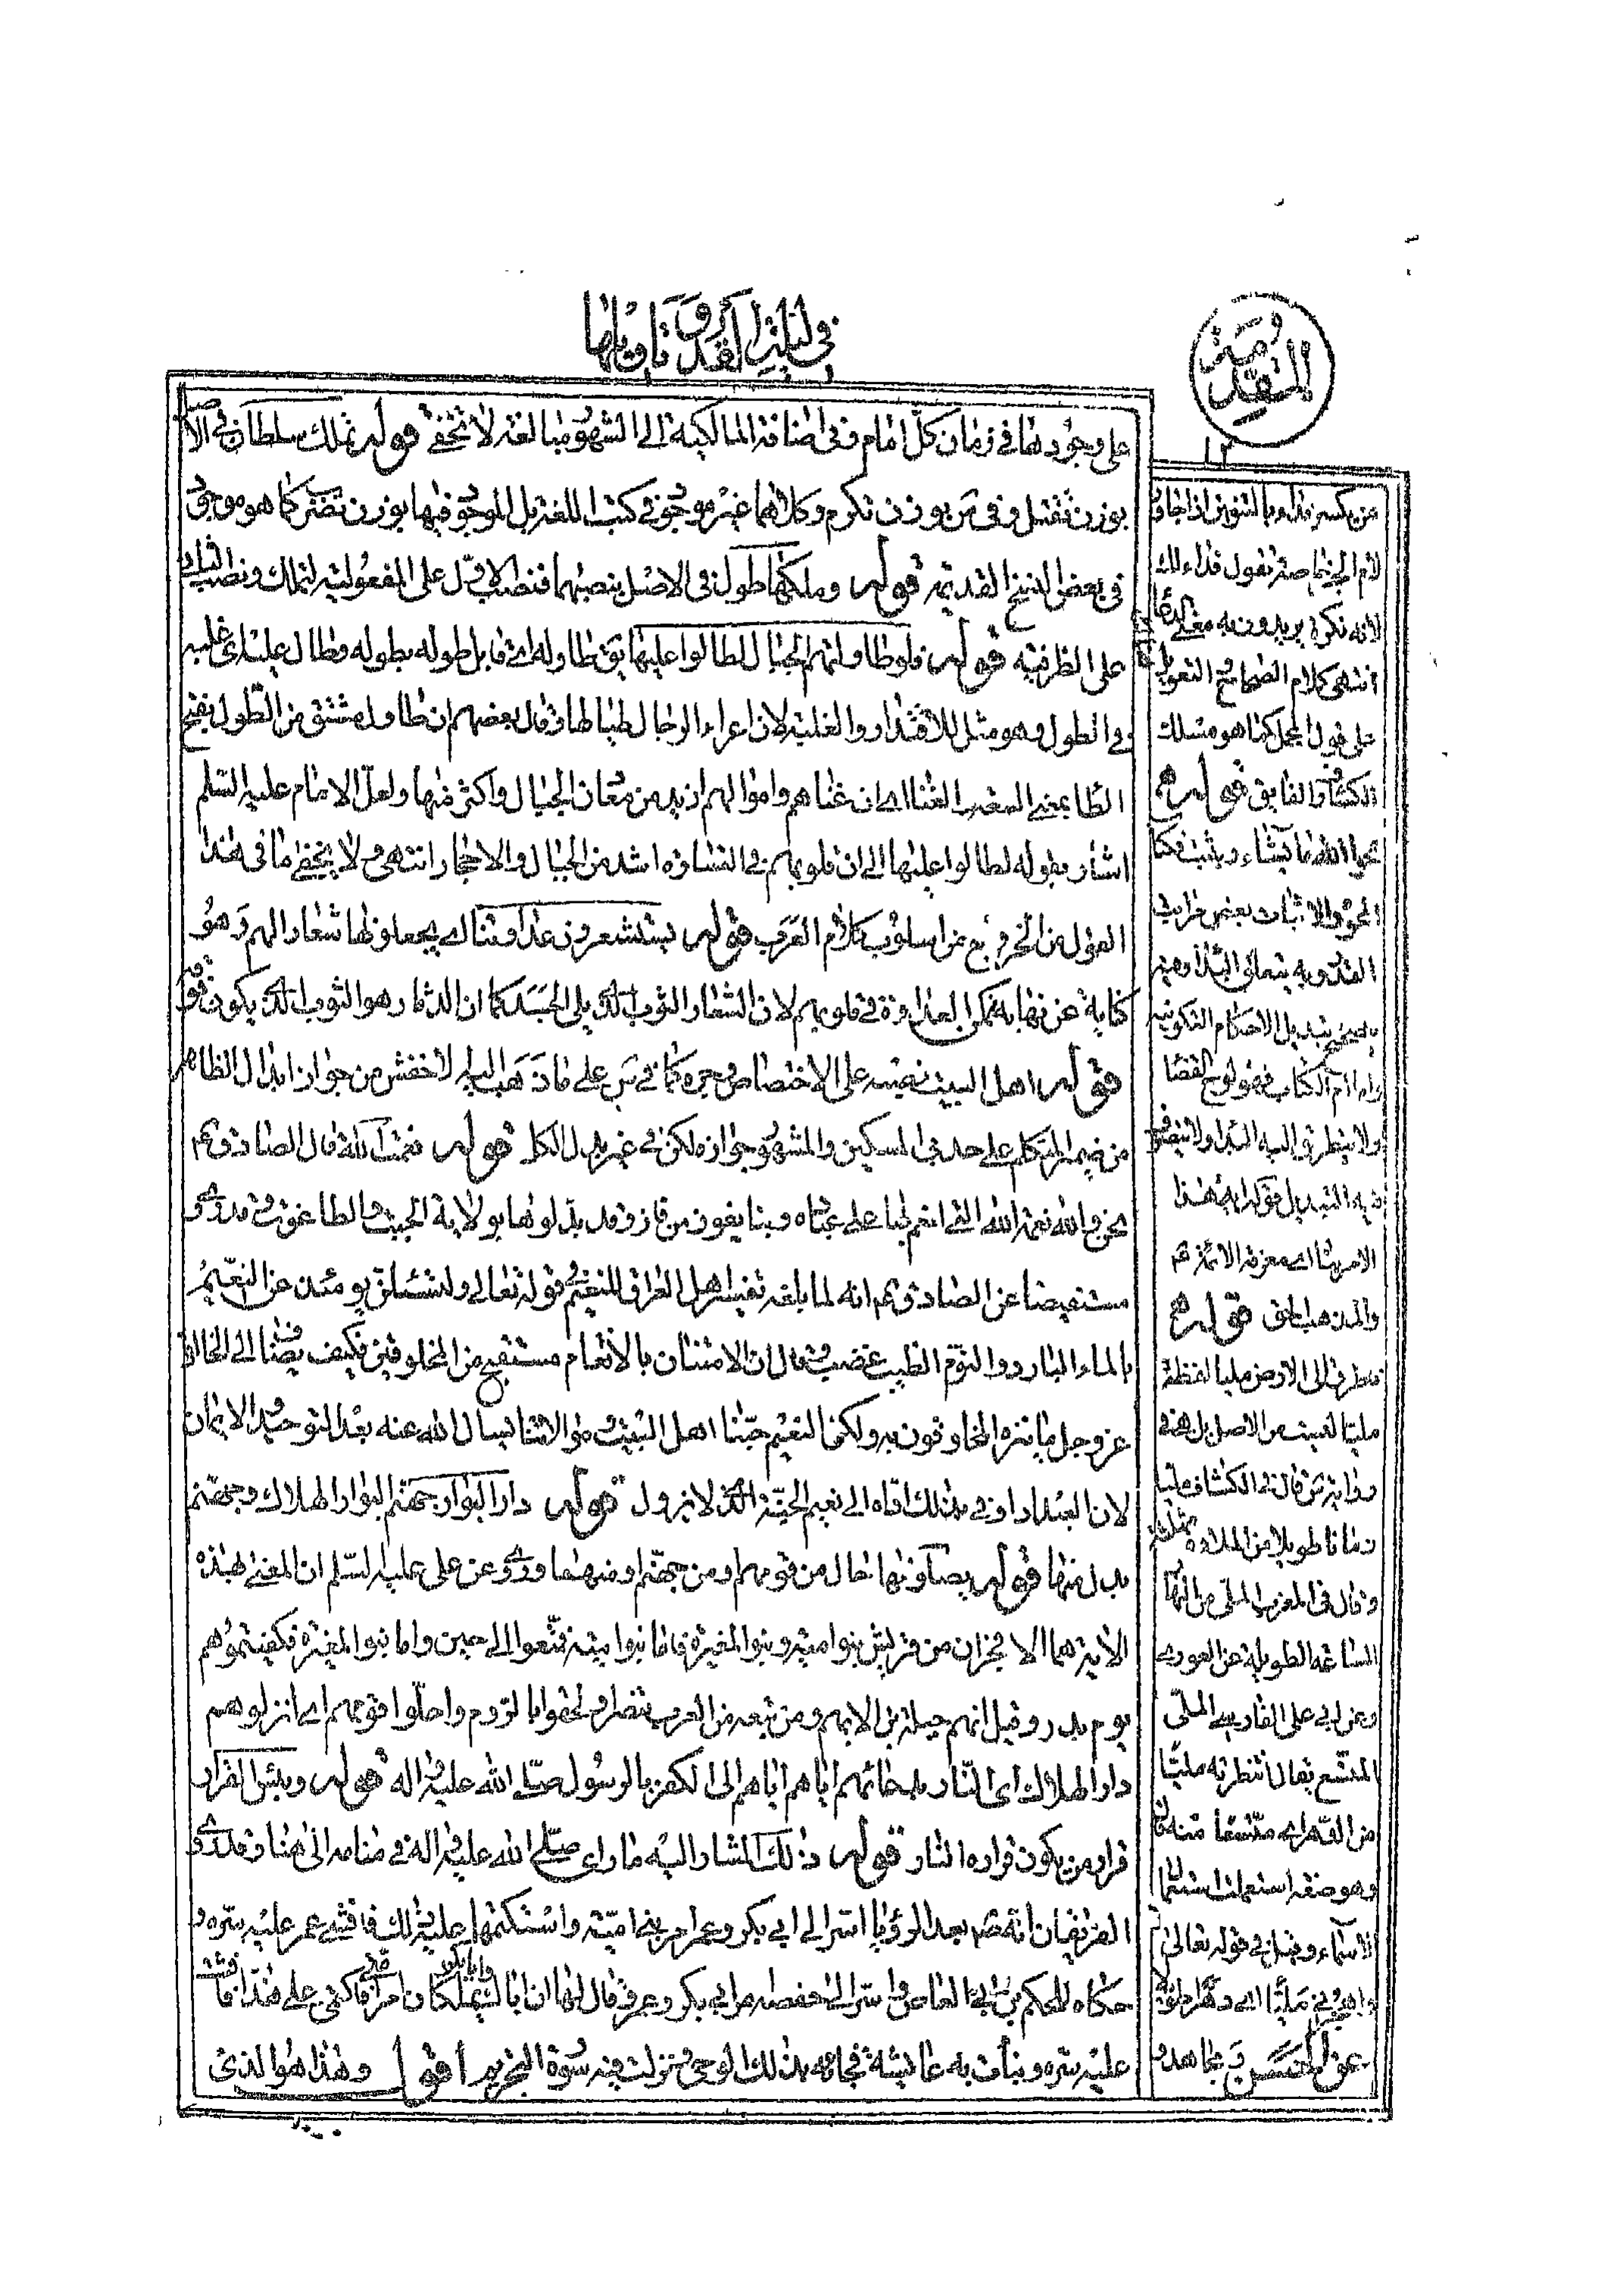 في ليلة القدر وتأويلها
المقدمة
١٢
على وجودها في زمان كل امام وفي اضافة المالكية الى الشهور مبالغة لا تخفى قوله تملك سلطان في الاصل
بوزن تفتعل وفي س بوزن تكرم وكلاهما غير موجود في كتب اللغة بل الموجود فيها بوزن تضرب كما هو موجود
في بعض النسخ القديمة قوله وملكها طول في الاصل بنصبهما فنصب الاول على المفعولية لتملك ونصب الثاني
على الظرفية قوله فلو طاولتهم الجبال لطالوا عليها يق طاوله اى قابل طوله بطوله وطال عليه اى غلبه
في الطول وهو مثل للاقتدار والغلبة لان اعراء الرجال لطبا لها وقال بعضهم ان طاول مشتق من الطول بفتح
الطا بمعنى السعة الغنا اى ان غناهم واموالهم ازيد من معان الجبال واكثر منها ولعل الامام عليه السلم
اشار بقوله لطالوا عليها الى ان قلوبهم في القساوة اشد من الجبال والاحجار انتهى ولا يخفى ما في هذا
القول من الخروج عن اسلوب كلام العرب قوله يستشعرون عداوتنا اى يجعلونها شعارا لهم وهو
كناية عن نهاية تمكن العداوة في قلوبهم لان الشعار الثوب الذي يلي الجسد كما ان الدثار هو الثوب الذي يكون فوقه
قوله اهل البيت نصبه على الاختصاص وجره كما في س على ما ذهب اليه لاخفش من جواز ابدال الظاهر
من ضمير المتكلم على حد بي المسكين والمشهور جوازه لكن في غير بدل الكل قوله نعمت الله قال الصادق ع
نحن والله نعمة الله التي انعم بها على عباده وبنا يفوز من فاز وقد بدلوها بولاية الجبت والطاغوت وقد روى
مستفيضا عن الصادق ع انه لما بلغه تفسير اهل العراق للنعيم في قوله تعالى ولتسئلن يومئذ عن النعيم
بالماء البارد والنوم الطيب غضب وقال ان الامتنان بالانعام مستقبح من المخلوقين فكيف يضاف الى الخالق
عز وجل ما تنزه المخلوقون به ولكن النعيم حبنا اهل البيت وموالاتنا يسال الله عنه بعد التوحيد والايمان
لان العبد اذا وفى بذلك اداه الى نعيم الجنة الذي لا يزول قوله دار البوار جهنم البوار الهلاك وجهنم
بدل منها قوله يصلونها حال من قومهم او من جهنم او منهما وروى عن على عليه السلم ان المعنى بهذه
الاية هما الافجران من قريش بنو امية وبنو المغيرة فاما بنو امية فمتعوا الى حين واما بنو المغيرة فكفيتموهم
يوم بدر وقيل انهم جبلة بن الايهم ومن تبعه من العرب تنصروا ولحقوا بالروم واحلوا قومهم اى انزلوهم
دار الهلاك اى النار بدعائهم اياهم اياهم الى الكفر بالرسول صلى الله عليه واله قوله وبئس القرار
قرار من يكون قراره النار قوله ذلك المشار اليه ما راى صلى الله عليه واله في منامه الى هنا وقد روى
الفريقان انه ص بعد الرؤيا اسر الى ابي بكر وعمر امر بني امية واستكتمهما عليه ذلك فافشى عمر عليه سره و
حكاه للحكم بن ابي العاص واسر الى حفصة امر ابي بكر وعمر وقال لها ان اباك وابا بكر يملكان امر امتي فاكتمي على هذا فافشت
عليه سره ونبأت به عايشة فجاءه بذلك الوحي ونزلت فيه سورة التحريم اقول وهذا هو الذي
من يكسر فداء بالتنوين اذا جاور
لام الجر خاصة تقول فداء لك
لانه نكرة يريدون به معنى الدعا
انتهى كلام الصحاح والتعويل
على قول المجمل كما هو مسلك
الكشاف والفايق قوله
يمحوا الله ما يشاء ويثبت فكا
المحو والاثبات بعض مراتب
القدر وبه يتعلق البداء وهو
تبديل الاحكام التكوينية
واما ام الكتاب فهو لوح القضا
ولا يتطرق اليه البدا ولا يتصور
فيه التبديل قوله هذا
الامر اى معرفة الائمة ع
والمذهب الحق قوله
فنظر في الى الارض مليا لفظة
مليا ليست من الاصل بل هي
رواية س قال في الكشاف مليا
زمانا طويلا من الملاوة مثلثة
وقال في المغرب الملي من النهار
الساعة الطويلة عن الغوري
وعن ابي علي الفارسي الملي
المتسع يقال انتظرته مليا
من الدهر اى متسعا منه قال
وهو صفة استعملت استعمال
الاسماء وقيل في قوله تعالى
واهجرني مليا اى دهرا طويلا
عن الحسن ومجاهد و